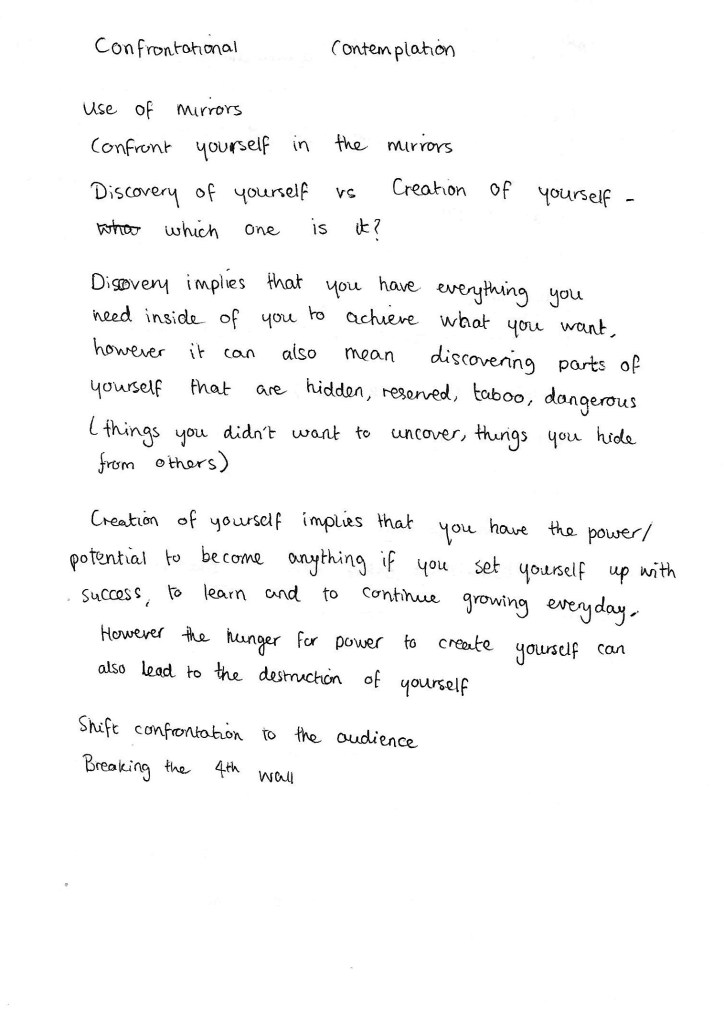 Confrontational Contemplation
Use of mirrors
Confront yourself in the mirrors
Discovery of yourself vs Creation of yourself -
which one is it?
Discovery implies that you have everything you
need inside of you to achieve what you want,
however it can also mean discovering parts of
yourself that are hidden, reserved, taboo, dangerous
(things you didn't want to uncover, things you hide
from others)
Creation of yourself implies that you have the power/
potential to become anything if you set yourself up with
success, to learn and to continue growing everyday.
However the hunger for power to create yourself can
also lead to the destruction of yourself
Shift confrontation to the audience
Breaking the 4th wall